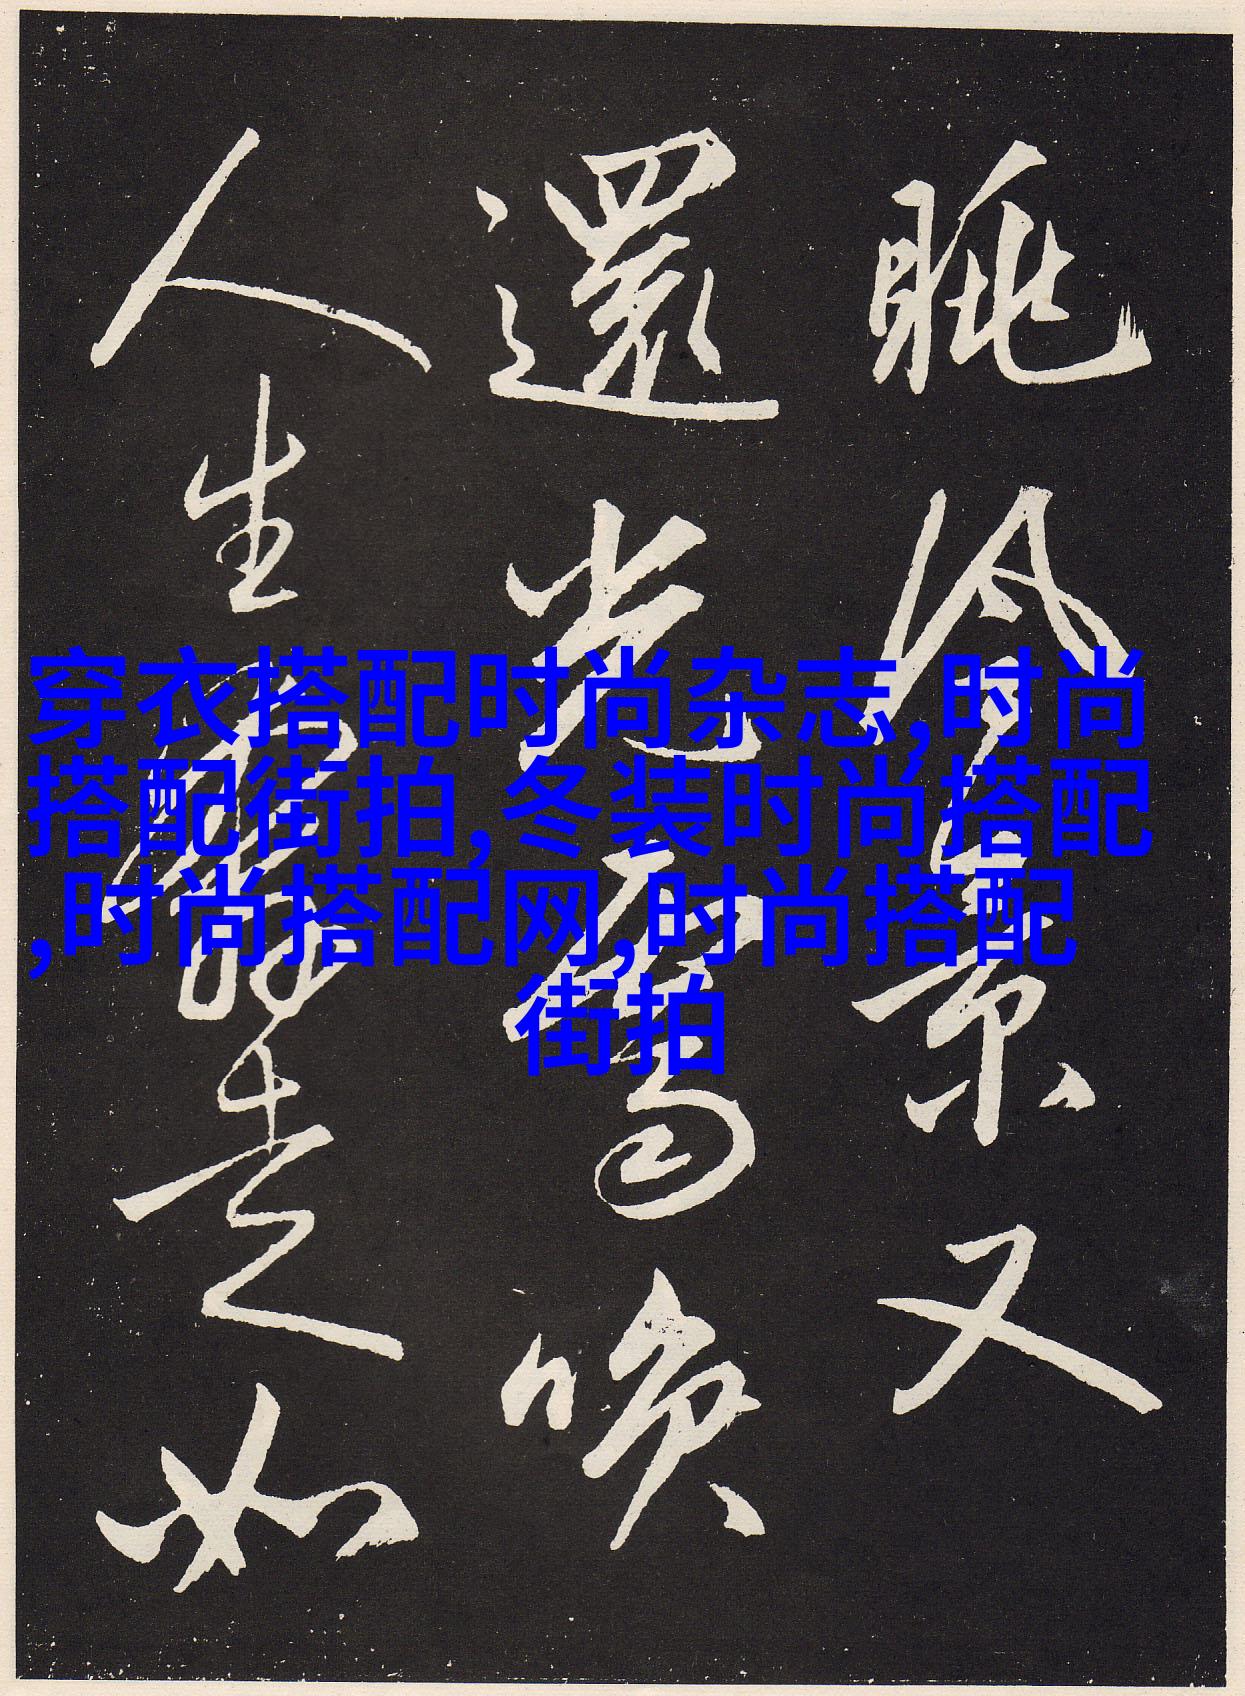 眺景又
還光喚
人生如
穿衣搭配时尚杂志,时尚
搭配街拍,冬装时尚搭配
,时尚搭配网,时尚搭配
街拍